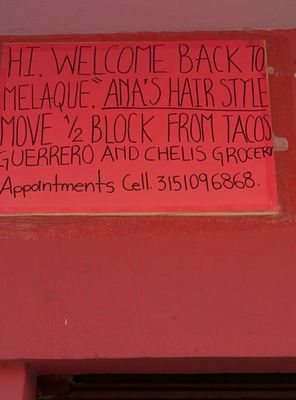 HI. WELCOME BACK TO
MELAQUE. "ANA'S HAIR STYLE
MOVE ½ BLOCK FROM TACOS
GUERRERO AND CHELIS GROCERY
Appointments Cell. 3151096868.